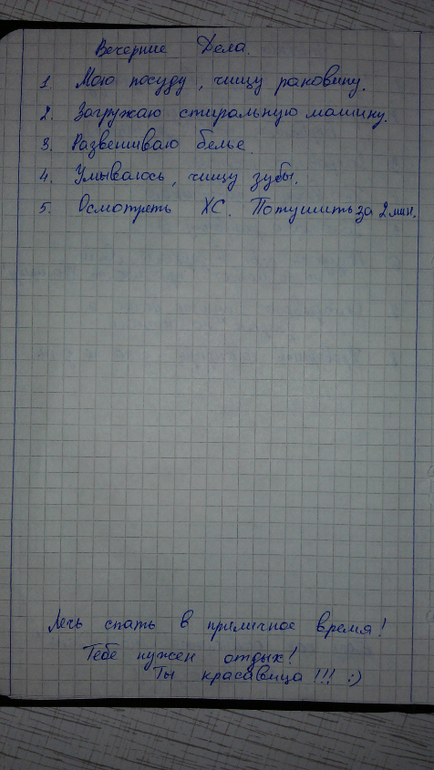 Вечерние Дела.
1. Мою посуду, чищу раковину.
2. Загружаю стиральную машину.
3. Развешиваю белье.
4. Умываюсь, чищу зубы.
5. Осмотреть ХС. Потушить за 2 мин.
Лечь спать в приличное время!
Тебе нужен отдых!
Ты красавица!!! :)